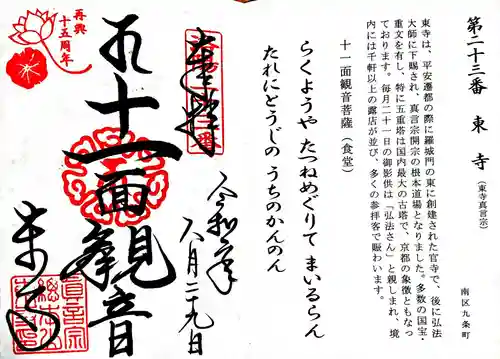 第二十三番 東寺 (東寺真言宗)
南区九条町
東寺は、平安遷都の際に羅城門の東に創建された官寺で、後に弘法
大師に下賜され、真言宗開宗の根本道場となりました。多数の国宝・
重文を有し、特に五重塔は国内最大の古塔で、京都の象徴ともなっ
ております。毎月二十一日の御影供は「弘法さん」と親しまれ、境
内には千軒以上の露店が並び、多くの参拝客で賑わいます。
十一面観音菩薩(食堂)
らくようや たつねめぐりて まいるらん
たれにとうじの うちのかんのん
奉拝
令和元年
八月二十九日
十一面観音
東寺
再興
十五周年